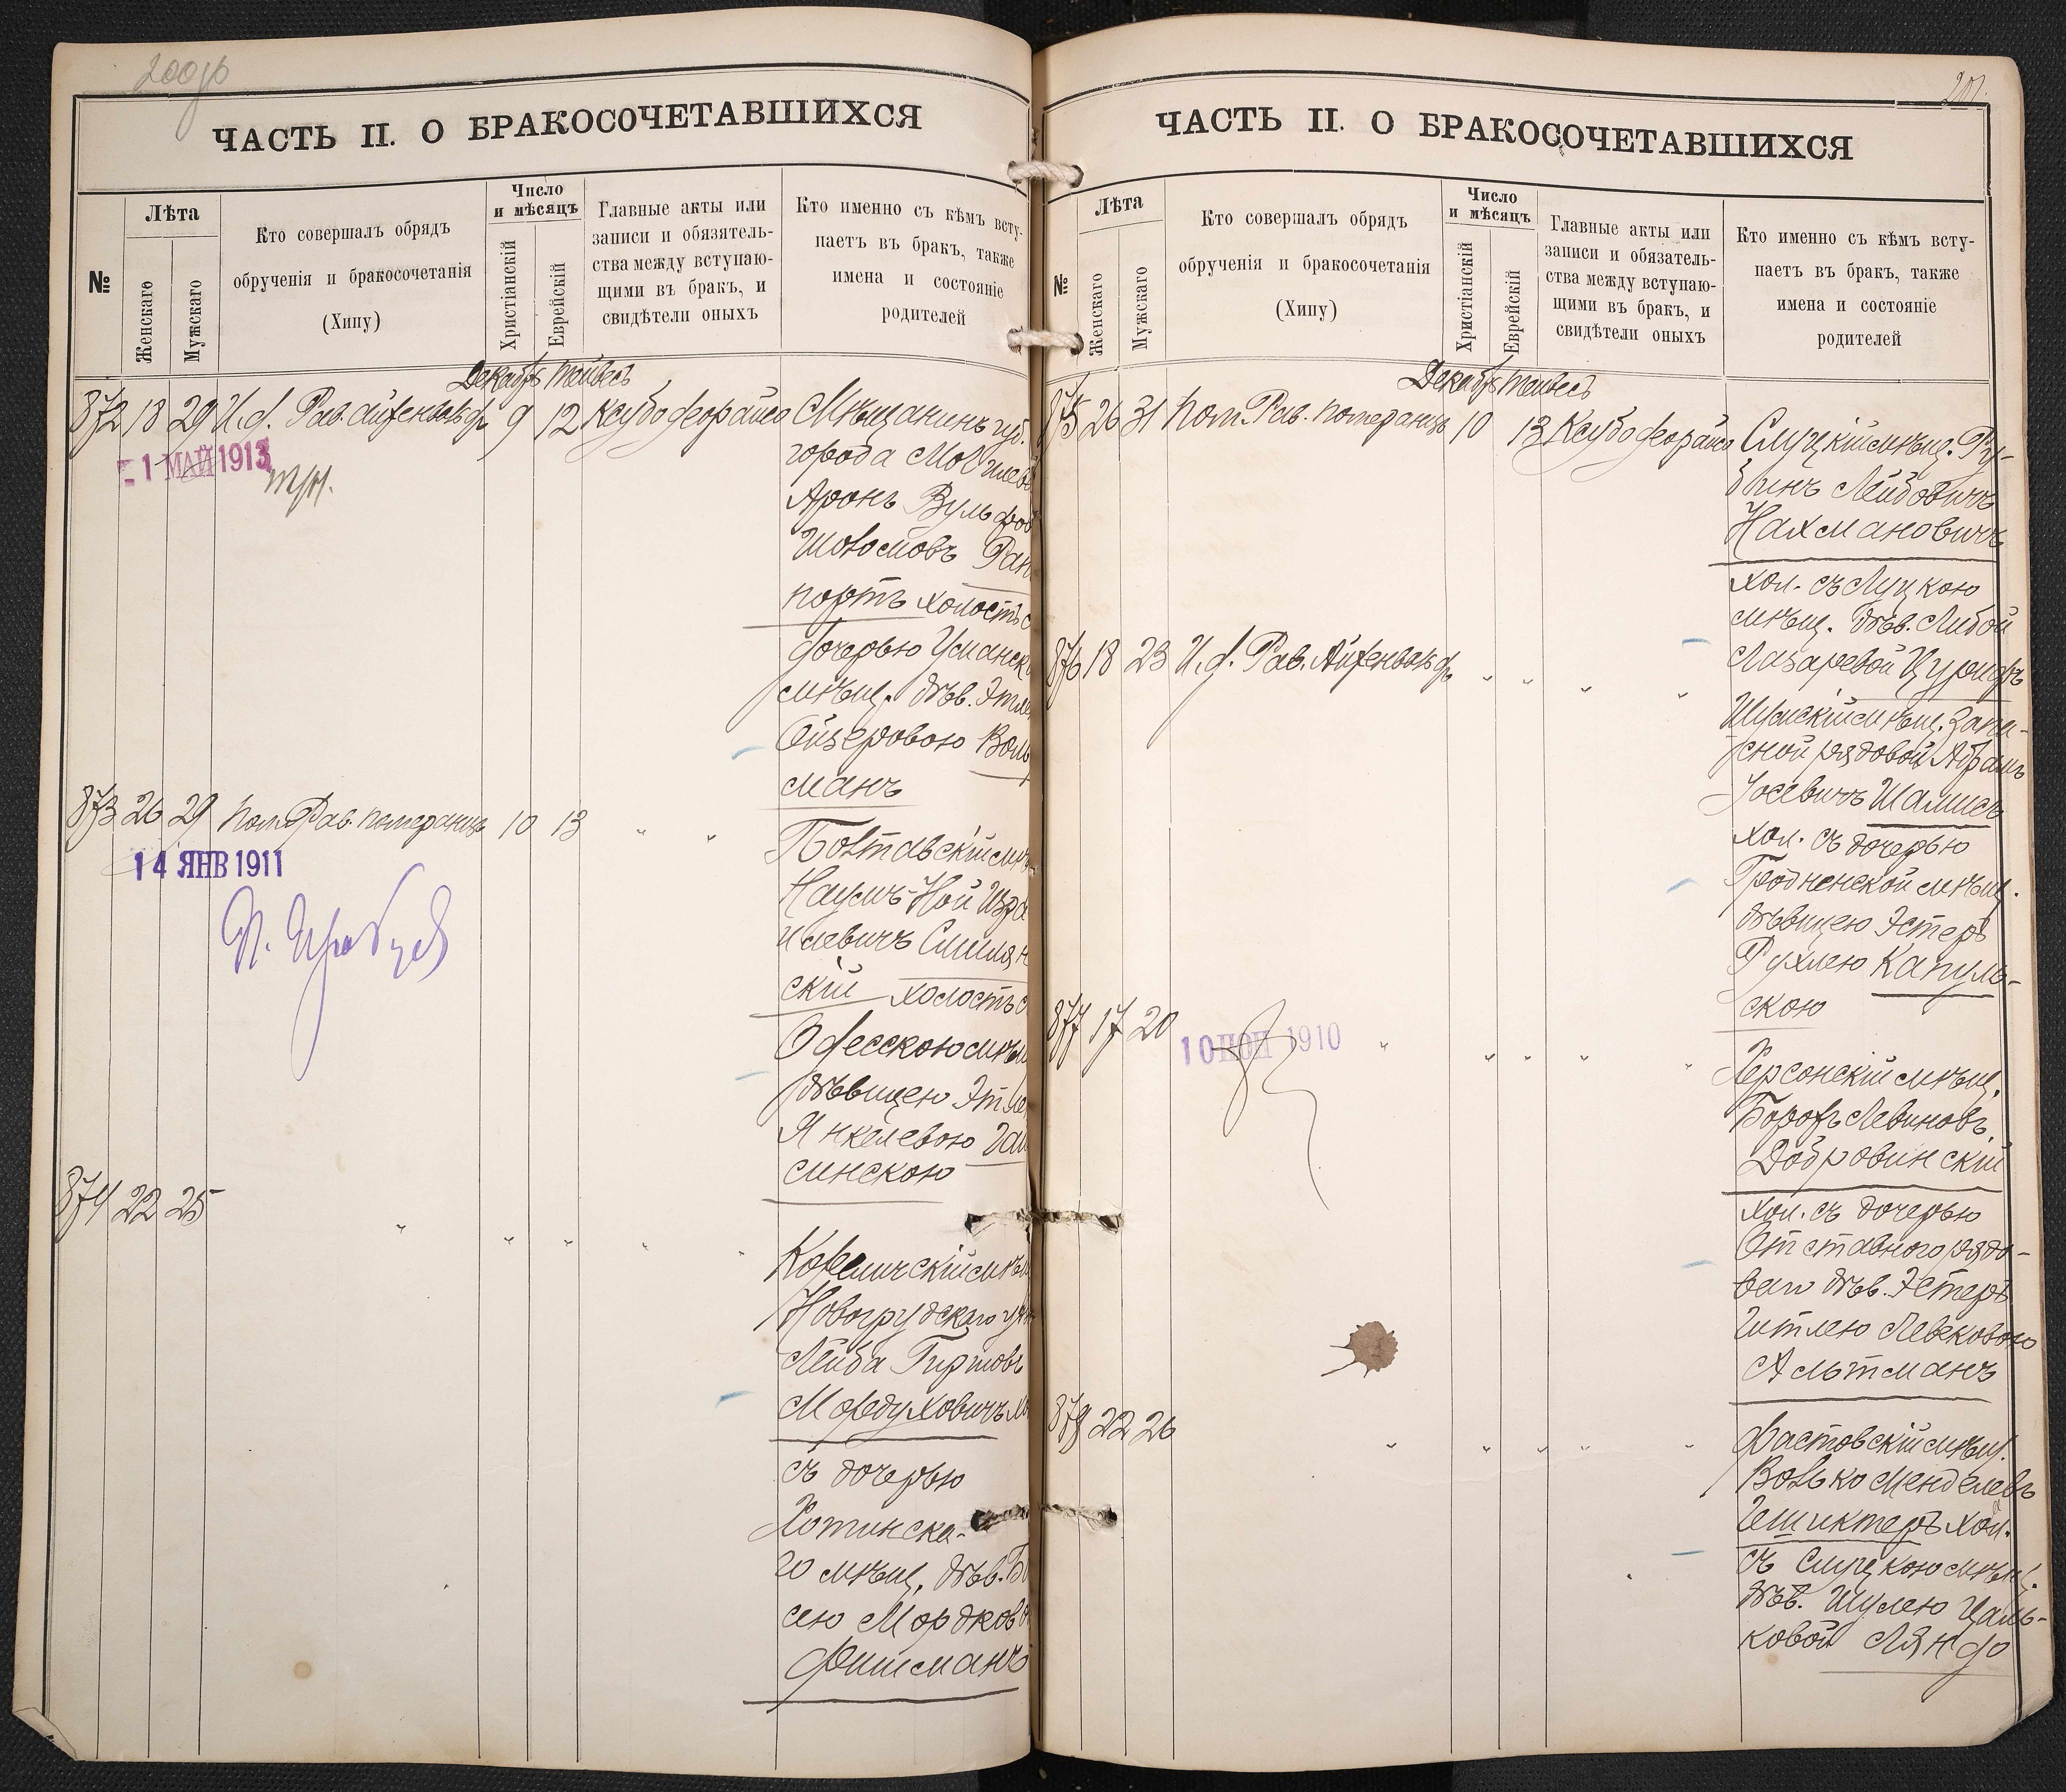 200об
ЧАСТЬ II. О БРАКОСОЧЕТАВШИХСЯ
№
Лѣта
Женскаго
Мужскаго
Кто совершалъ обрядъ
обрученія и бракосочетанія
(Хипу)
Число
и мѣсяцъ
Христіанскій
Еврейскій
Главные акты или
записи и обязатель-
ства между вступаю-
щими въ бракъ, и
свидѣтели оныхъ
Кто именно съ кѣмъ всту-
паетъ въ бракъ, также
имена и состояніе
родителей
Декабрь Тейвесъ
872 18 29 И.д. Рав. Айзенвольфъ 9 12 Ксубо
- 1 МАЙ 1913
Мѣщанинъ губ.
города Могилев
Аронъ Вульфов
Шоломовъ Рап
портъ холостъ с
дочерью Уманск
мѣщ. дѣв. Этле
Ойзеровою Воль
манъ
873 26 29 Пом. Рав. Померанцъ 10 13 " "
14 ЯНВ 1911
Полтавскій мѣ
Наумъ-Ной Изра
илевичъ Смилян
скій холостъ с
Одесскою мѣщ
дѣвицею Этле
Янкелевою
синскою
874 22 25 " " " " "
Корелическій мѣщ
Новогрудскаго
Лейба Гиршовъ
Мордуховичъ
съ дочерью
Хотинска-
го мѣщ. дѣв. Б
сею Мордков
Фишманъ
201.
ЧАСТЬ II. О БРАКОСОЧЕТАВШИХСЯ
№
Лѣта
Женскаго
Мужскаго
Кто совершалъ обрядъ
обрученія и бракосочетанія
(Хипу)
Число
и мѣсяцъ
Христіанскій
Еврейскій
Главные акты или
записи и обязатель-
ства между вступаю-
щими въ бракъ, и
свидѣтели оныхъ
Кто именно съ кѣмъ всту-
паетъ въ бракъ, также
имена и состояніе
родителей
Декабрь Тейвесъ
875 26 31 Пом. Рав. Померанцъ 10 13 Ксубо
Слуцкій мѣщ. Ру-
бинъ Лейбовичъ
Нахмановичъ
хол. съ Луцкою
мѣщ. дѣв. Либой
Лазаревой Цурифъ
876 18 23 И.д. Рав. Айзенвольфъ " " " "
Шумскій мѣщ. запа-
сной рядовой Абрамъ
Іосевичъ Шамисъ
хол. съ дочерью
Гродненской мѣщ.
дѣвицею Эстеръ
Рухлею Капуль-
скою
877 17 20 " " " " "
10 1910
Херсонскій мѣщ.
Борохъ Левиновъ
Добровинскій
хол. съ дочерью
Отставного рядо-
вого дѣв. Эстеръ
Гитлею Левковою
Альтманъ
878 22 26 " " " " "
Фастовскій мѣщ.
Волько Менделевъ
Гешиктеръ хол.
съ Слуцкою мѣщ.
дѣв. Шулею Цаль-
ковой Ляндо